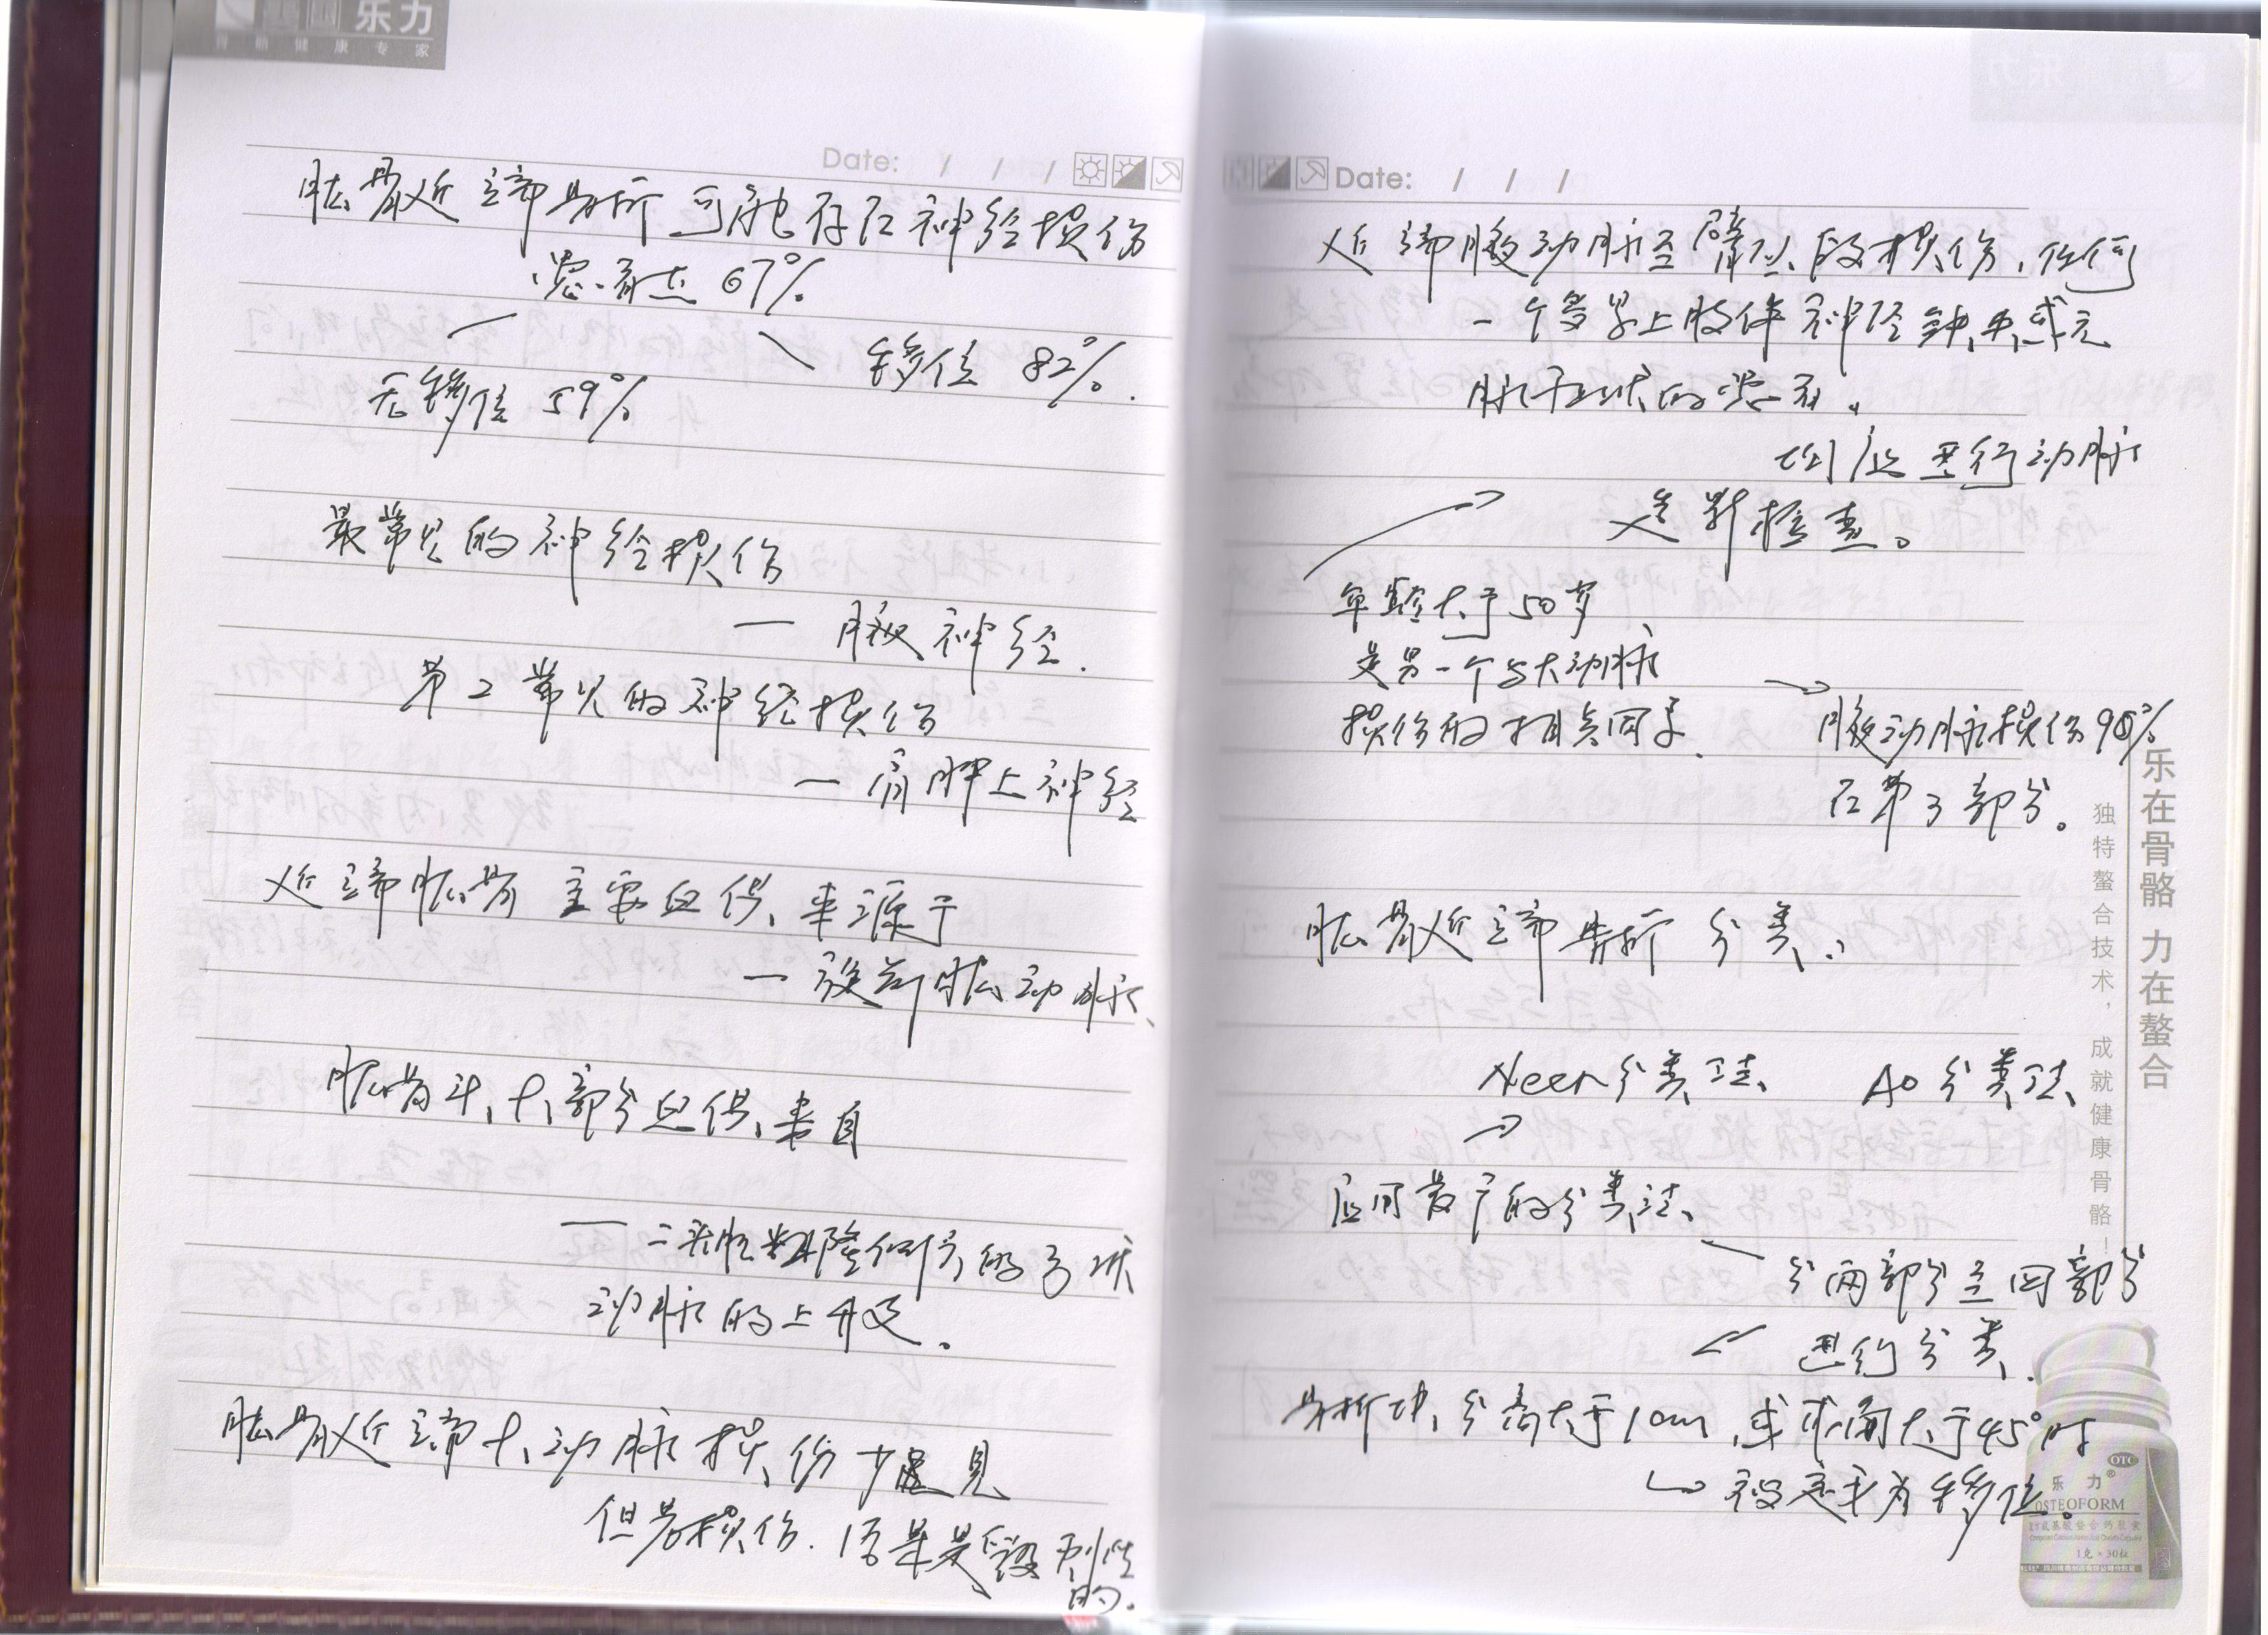 乐力
骨骼健康专家
Date: / / /
肱骨近端骨折可能存在神经损伤
患者占67%
移位 82%.
无移位 59%
最常见的神经损伤
— 腋神经.
第2常见的神经损伤
— 肩胛上神经
近端肱骨 主要血供、来源于
— 旋前肱动脉、
肱骨头、大部分血供、来自
— 二头肌粗隆侧方的弓状
动脉的上升支。
肱骨近端大动脉损伤少见
但若损伤.后果是毁灭性
的.
Date: / / /
近端腋动脉至臂丛段损伤、任何
一个多累上肢伴神经缺失或无
脉症状的患者。
均应进行动脉
造影检查。
年龄大于50岁、
是另一个与大动脉
损伤的相关因子.
腋动脉损伤90%
在第3部分。
肱骨近端骨折 分类、:
Neer分类法、 AO分类法、
应用最广的分类法、
分两部分至四部分
进行分类.
骨折块、分离大于1cm、或成角大于45°时
被定义为移位。
乐在骨骼 力在螯合
独特螯合技术，成就健康骨骼—
OTC
乐力®
OSTEOFORM
1克×30粒